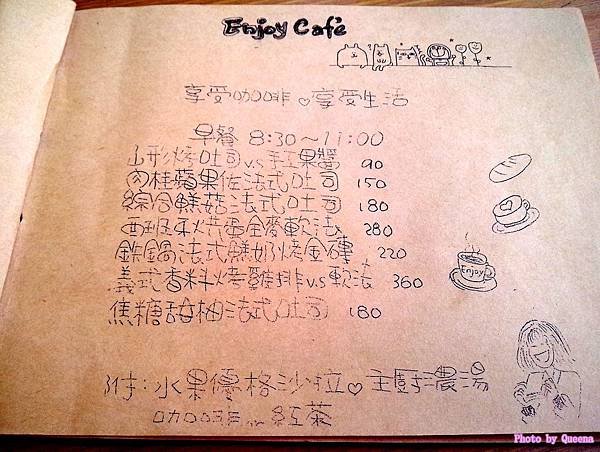 Enjoy Café
享受咖啡 享受生活
早餐 8:30～11:00
山形烤吐司 v.s 手工果醬 90
肉桂蘋果佐法式吐司 150
綜合鮮菇法式吐司 180
西班牙烘蛋全麥軟法 280
鉄鍋法式鮮奶烤金磚 220
義式香料烤雞排 v.s 軟法 360
焦糖甜柚法式吐司 180
Enjoy
附：水果優格沙拉 主廚濃湯
咖啡 or 紅茶
Photo by Queena